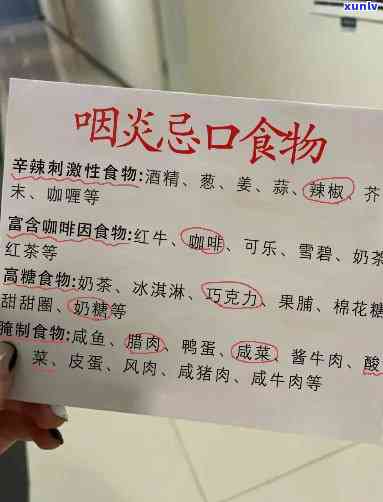 xunlv
咽炎忌口食物
辛辣刺激性食物:酒精、葱、姜、蒜、辣椒、芥
末、咖喱等
富含咖啡因食物:红牛、咖啡、可乐、雪碧、奶茶
红茶等
高糖食物:奶茶、冰淇淋、巧克力、果脯、棉花糖
甜甜圈、奶糖等
腌制食物:咸鱼、腊肉、鸭蛋、咸菜、酱牛肉、酸
菜、皮蛋、风肉、咸猪肉、咸牛肉等